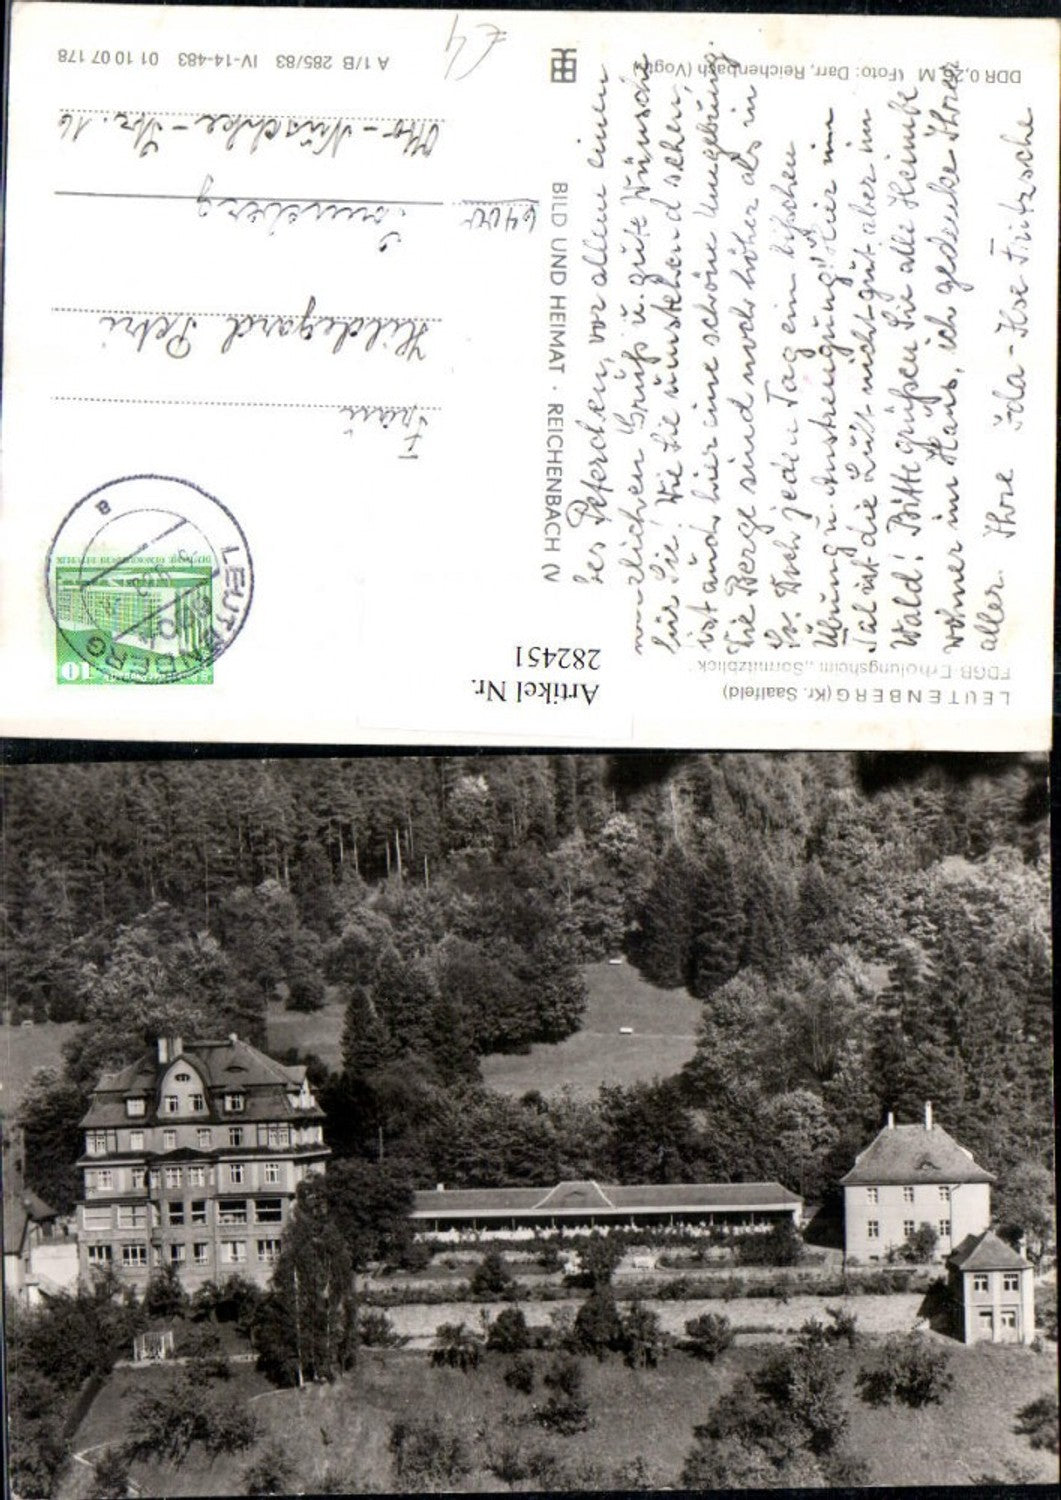 LEUTENBERG (Kr. Saalfeld)
FDGB-Erholungsheim „Sormitzblick“
Artikel Nr.
282451
bes Peterchen, vor allem einen
herzlichen Gruß u. gute Wünsche
für Sie! Wie Sie umstehend sehen,
ist auch hier eine schöne Umgebung.
Die Berge sind noch höher als in
So. Doch jeden Tag ein bißchen
Übung u. Anstrengung! Hier im
Tal ist die Luft nicht gut, aber im
Wald! Bitte grüßen Sie alle Heimbe
wohner im Haus, ich gedenke Ihrer
aller. Ihre Ida-Ilse Fritzsche
BILD UND HEIMAT · REICHENBACH (V
DDR 0,25 M (Foto: Darr, Reichenbach (Vogtl.)
A 1/B 285/83 IV-14-483 01 10 07 178
LEUTENBERG
a
10
DEUTSCHE DEMOKRATISCHE REPUBLIK
Frau
Hildegard Petri
6400 Sonneberg
Otto-Nuschke-Str. 16
€4